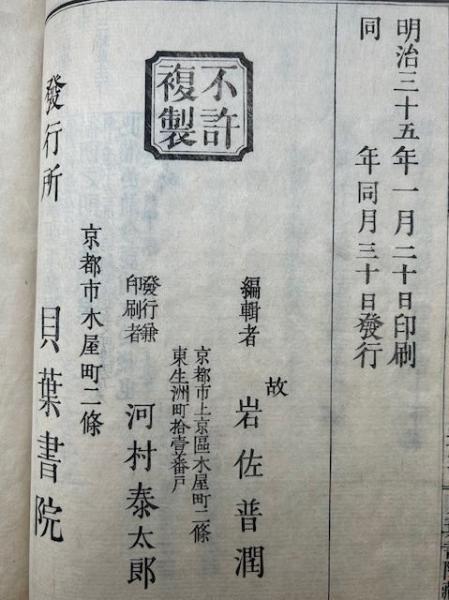 明治三十五年一月二十日印刷
同年同月三十日發行
不許
複製
編輯者 故 岩佐普潤
京都市上京區木屋町二條
東生洲町拾壹番戸
發行兼
印刷者 河村泰太郎
京都市木屋町二條
發行所 貝葉書院